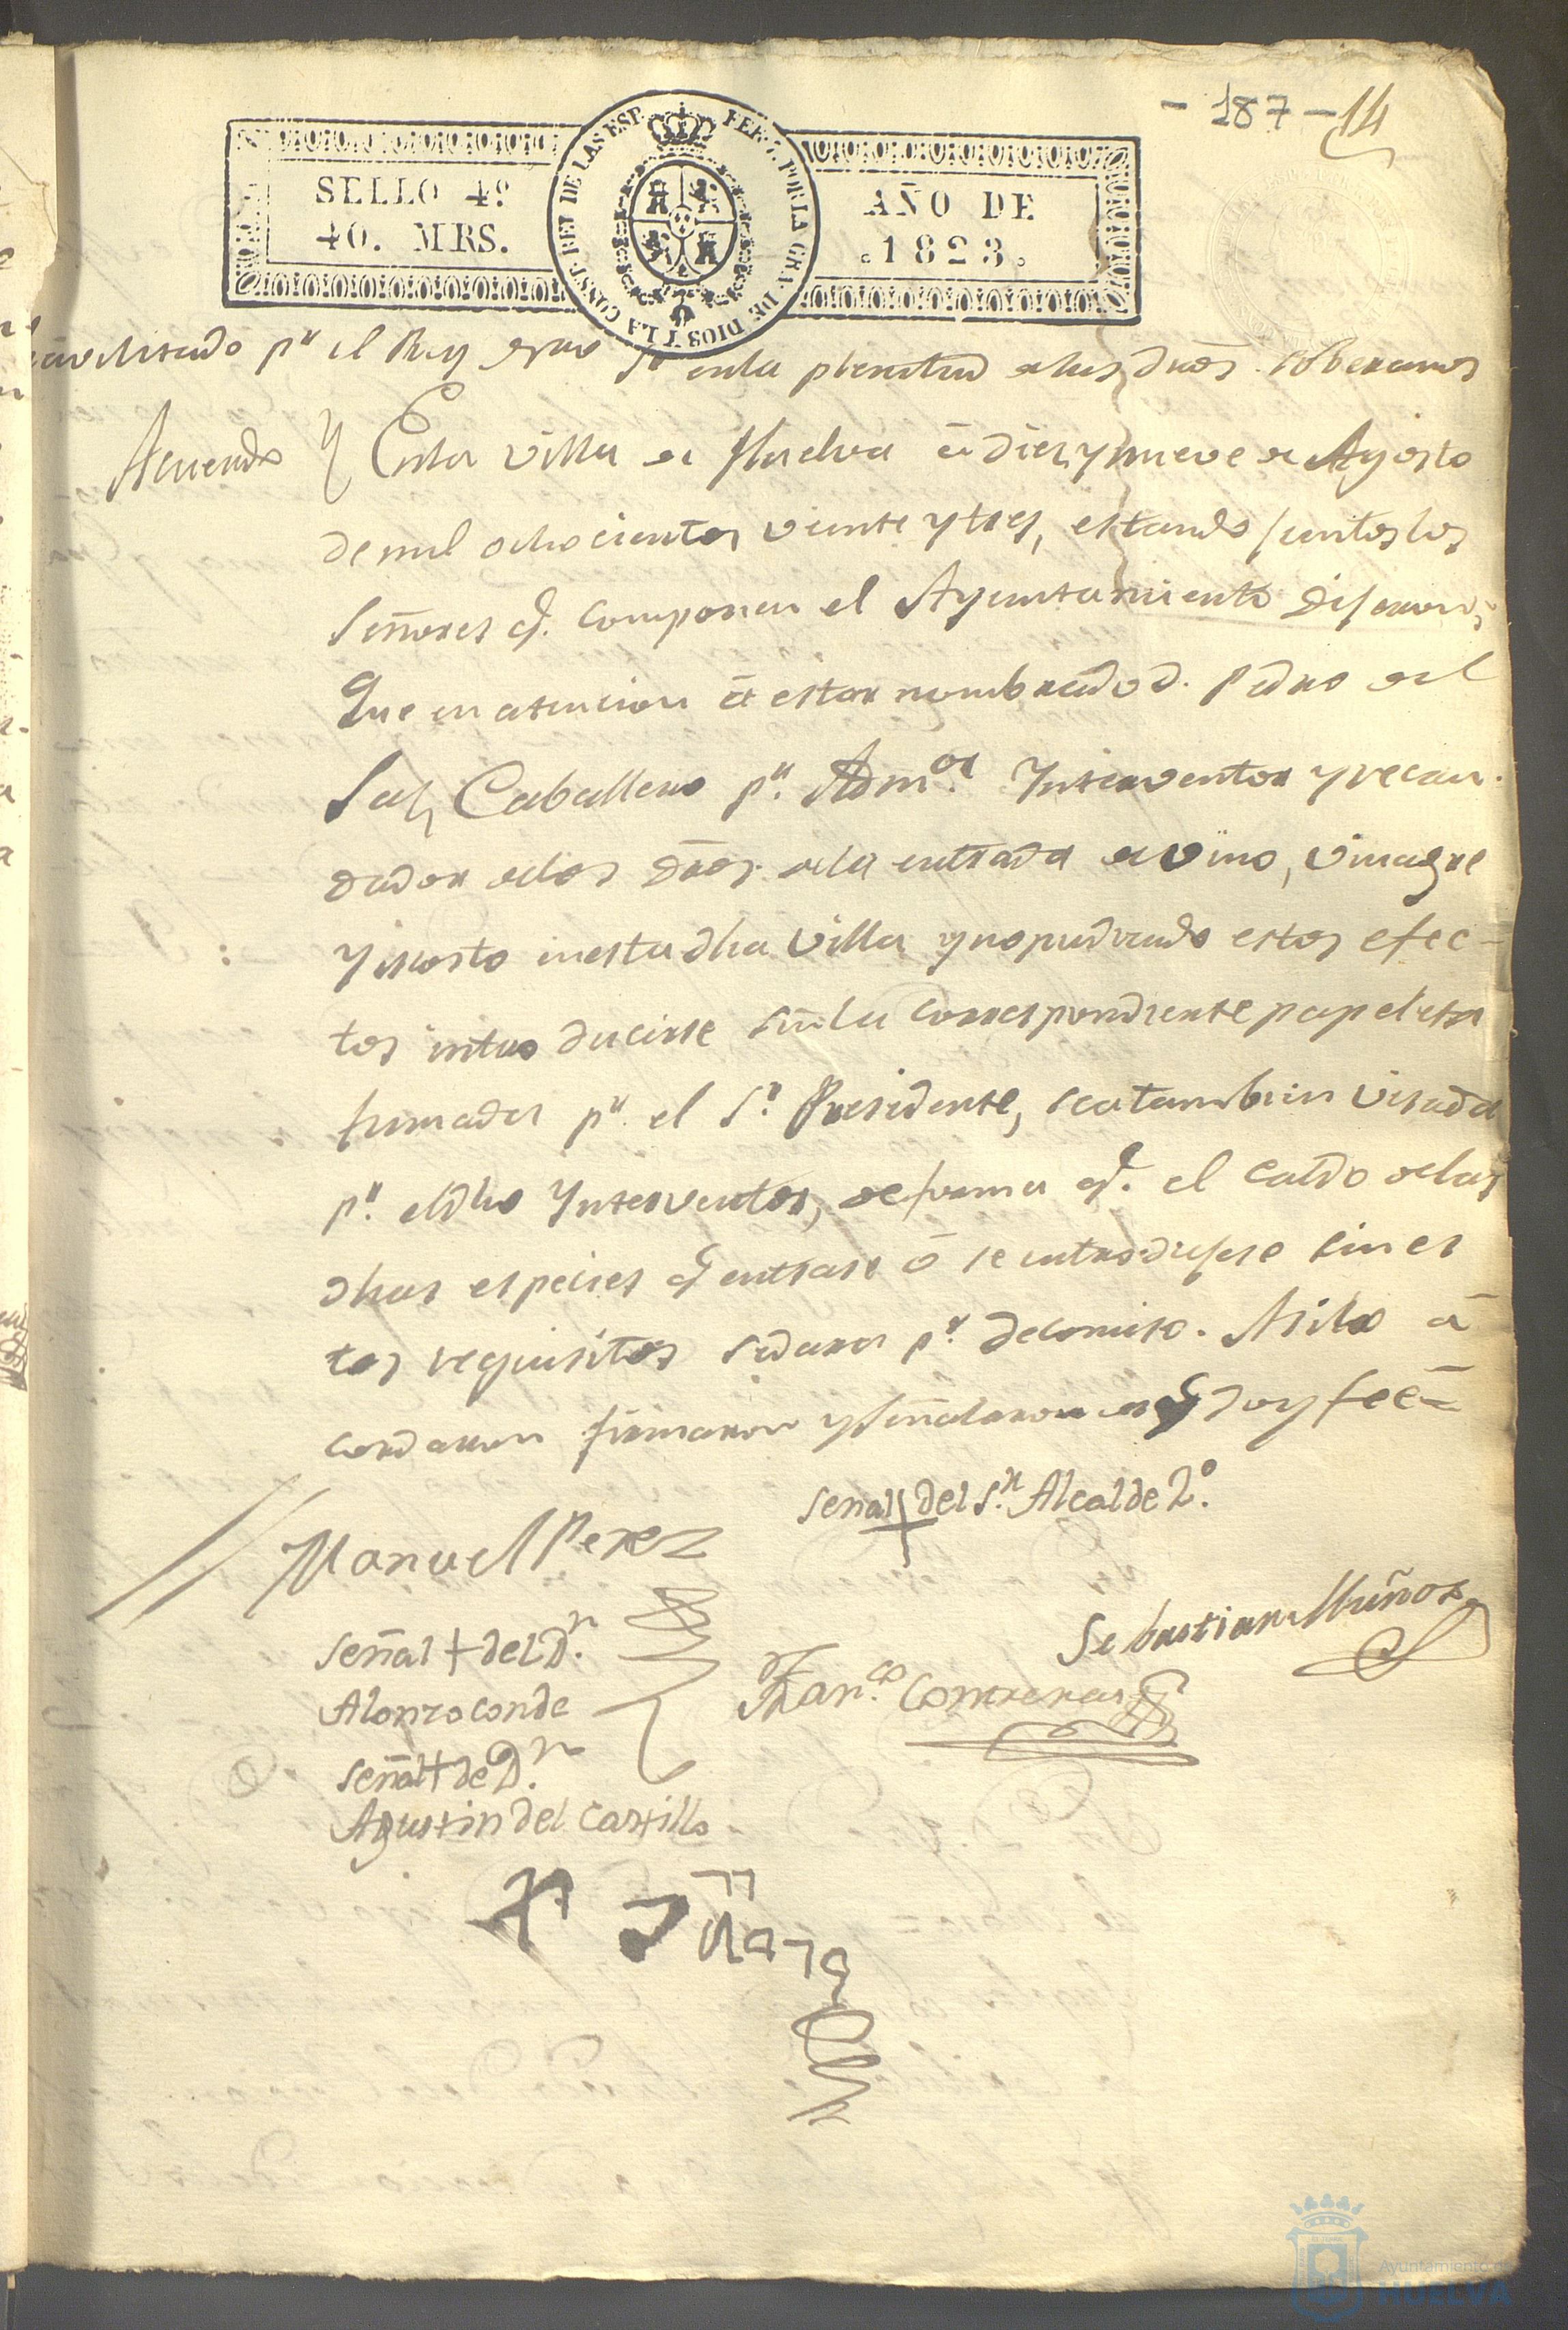 - 187 - 14
SELLO 4º
40. MRS.
FER. 7. POR LA GRA. DE DIOS Y LA CONST. REI DE LAS ESP.
AÑO DE
.1823.
avilitado pr el Rey nro Sr enla plenitud de sus dros. soberanos
Acuerdo
Y Enla Villa de Huelva á diez y nueve de Agosto
de mil ochocientos veinte y tres, estando juntos los
Señores q. componen el Ayuntamiento dijeron;
Que en atencion á estar nombrado d. Pedro del
Saz Caballero pr. Admor. Ynterventor y recau-
dador delos dros. dela entrada de vino, vinagre
y mosto en esta dha Villa y no pudiendo estos efec-
tos introducirse sin la correspondiente papeleta
firmada pr. el Sr. Presidente, sea tambien visada
pr. el dho Ynterventor, de forma q. el caldo delas
dhas especies q entrase ó se introdujese sin es
tos requisitos se dara pr. decomiso. Asi lo a
cordaron firmaron y señalaron de q doy fee=
señal + del Sr. Alcalde 2º.
Manuel Perez
Sebastian Muñoz
señal + del Dn.
Alonzo conde
Franco. Contreras
señal + de Dn.
Agustin del Castillo
Ayuntamiento de
HUELVA